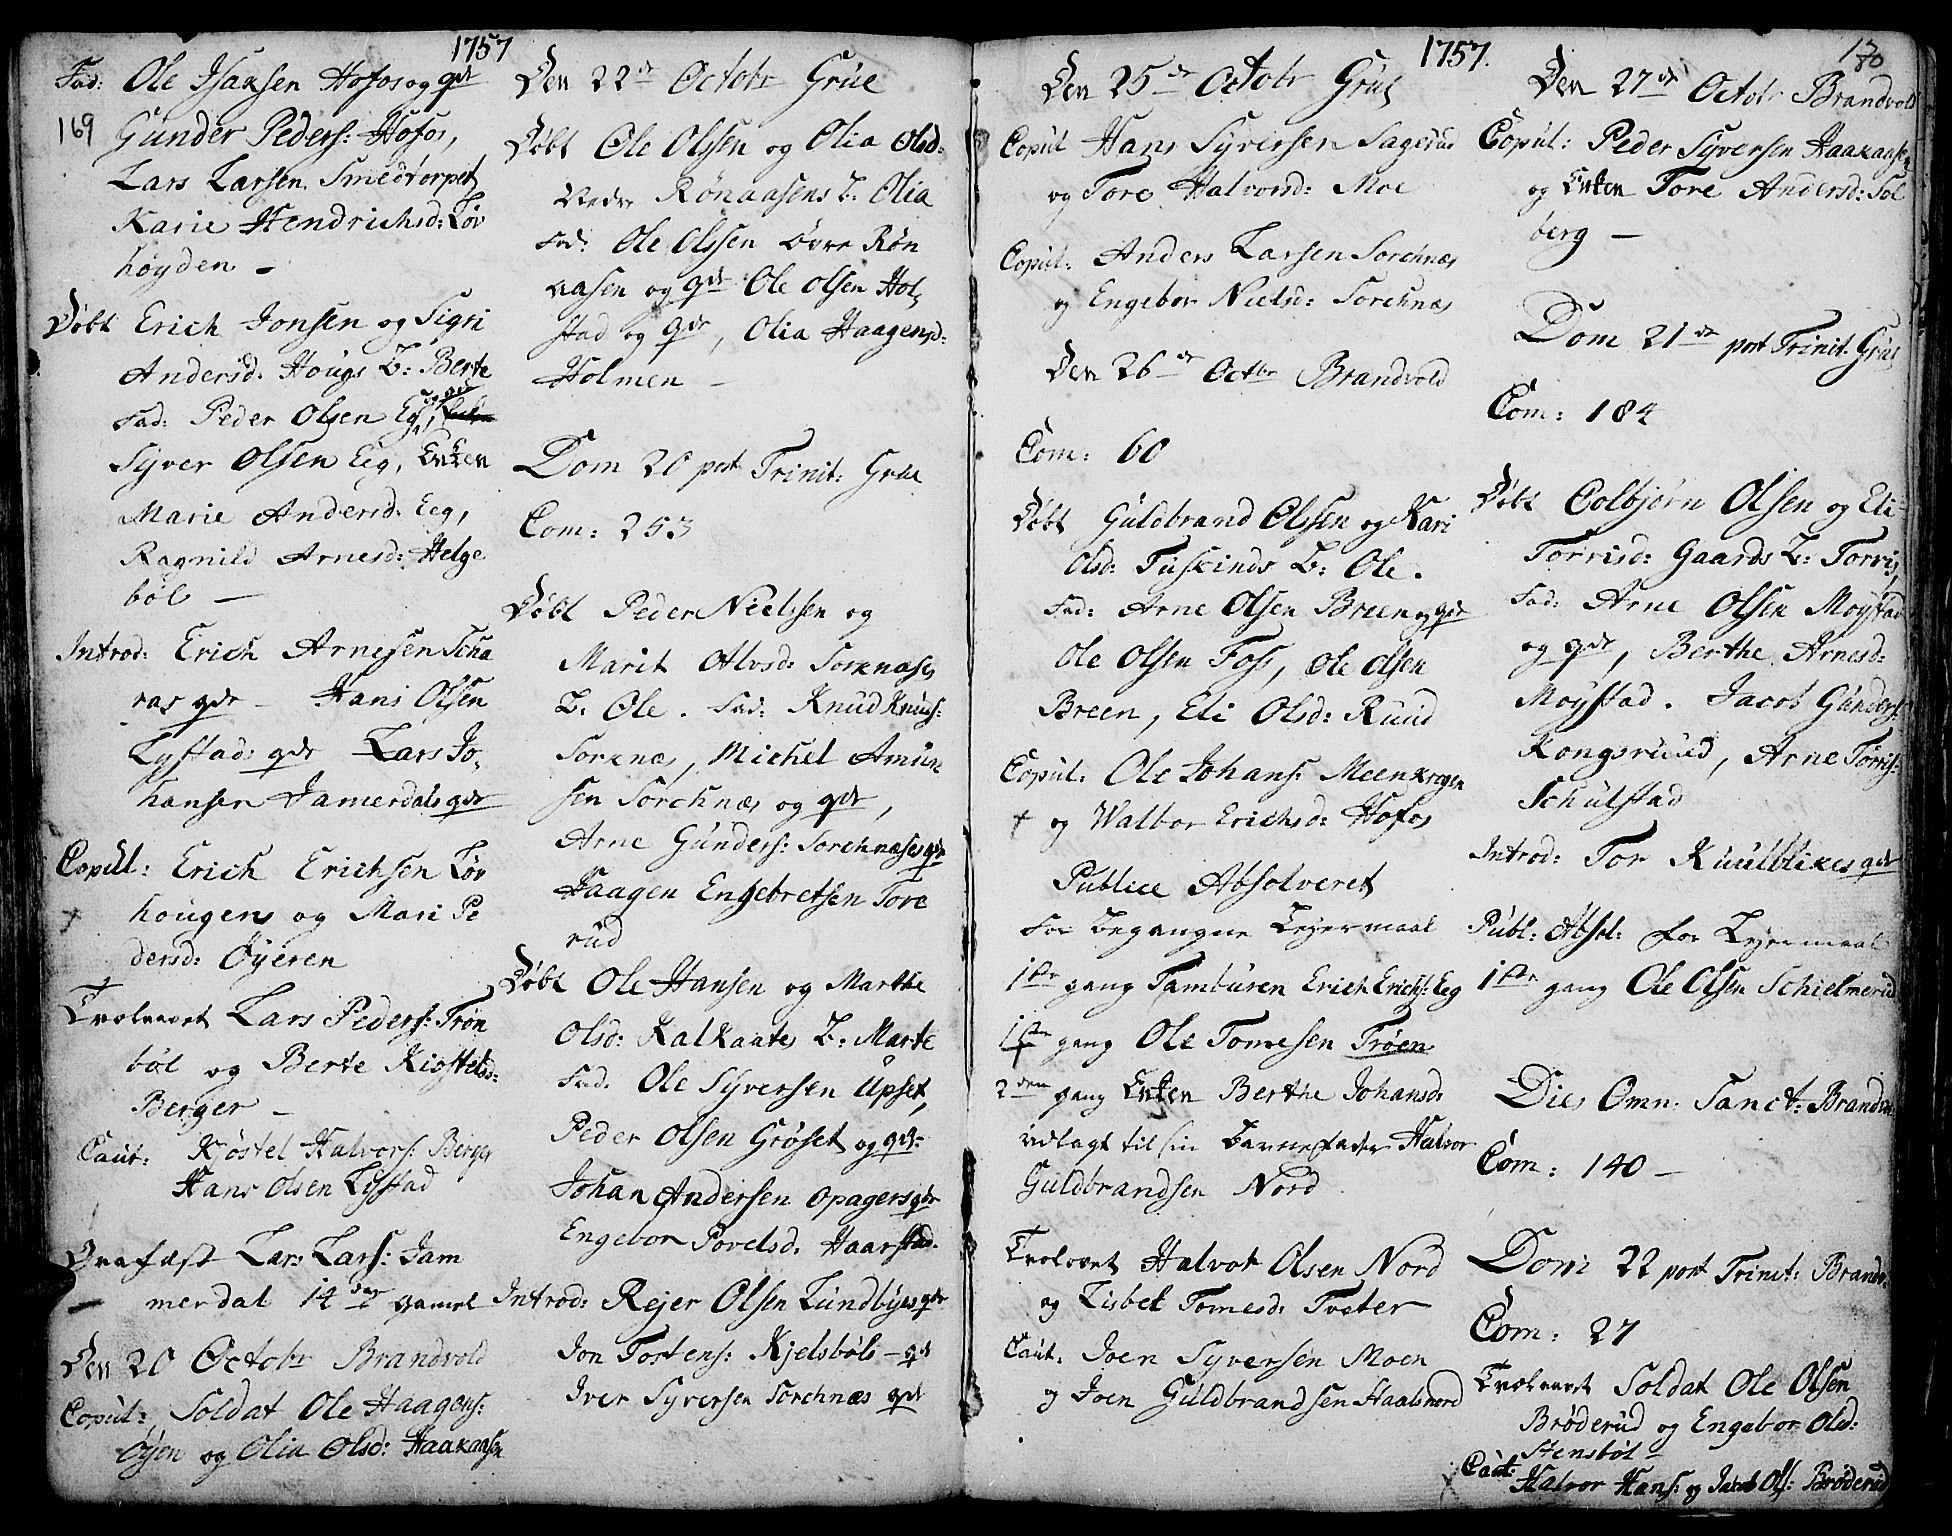 1757
Fad: Ole Isaksen Hofos og qdr
169 Gunder Peders: Hofos,
Lars Larsen Smedtorpet
Karie Hendrichsd: Löv
höyden -
Döbt Erich Jonsen og Sigri
Andersd. Hougs B: Berte
Fad: Peder Olsen Eg, og qdr
Syver Olsen Eeg, Enken
Marie Andersd: Eeg,
Ragnild Arnesd: Helge
böl -
Introd: Erich Arnesen Scha
ras qdr - Hans Olsen
Lystads qdr Lars Jo,
hansen Jamerdals qdr
Copul: Erich Erichsen Löv
hougens og Mari Pe
dersd: Öyeren
Trolovet Lars Peders: Trön
böl og Berte Kiöstelsd:
Berger -
Caut: Kjöstel Halvors: Berger
Hans Olsen Lystad
Gravfæst Lars Lars: Jam
merdal 14 dage gamel
Den 20 Octobr Brandvold
Copul: Soldat Ole Haagens:
Öyen og Olia Olsd: Haakaasen
Den 22de Octobr Grue
Döbt Ole Olssen og Olia Olsd:
Nedre Rönaasens B: Olia
Fad: Ole Olssen Övre Rön
aasen og qdr Ole Olsen Hol,
stad og qdr, Olia Haagensd:
Holmen -
Dom 20 post Trinit: Grue
Com: 253
Döbt Peder Nielssen og
Marit Alvsd: Sorknæs
B: Ole. Fad: Knud Knuds:
Sorknæs, Michel Amun
sen Sorchnæs og qdr,
Arne Gunders: Sorchnæses qdr
Haagen Engebretsen Tore
rud
Döbt Ole Hansen og Marthe
Olsd: Kalkaates B: Marte
Fad. Ole Syversen Upset,
Peder Olsen Gröset og qdr:
Johan Andersen Opagers qdr
Engebor Povelsd. Haarstad.
Introd: Rejer Olsen Lundbyes qdr
Jon Tostens: Kjelsböls - qdr
Iver Syversen Sorchnæs qdr
1757.
Den 25de Octobr Grue
Copul Hans Syversen Sagerud
og Tore Halvorsd: Moe
Copul: Anders Larsen Sorchnæs
og Engebor Nielsd: Sorchnæs
Den 26de Octbr Brandvold
Com: 60
Döbt Guldbrand Olssen og Kari
Olsd: Tuskinds B: Ole.
Fad: Arne Olsen Breen og qdr
Ole Olsen Foss, Ole Olsen
Breen, Eli Olsd: Ruud
Copul: Ole Johans: Meenkrogen
og Walbor Erichsd: Hofos
Publice Absolveret
For begangne Lejermaal
1ste gang Tamburen Erich Erichs: Eeg
1ste gang Ole Tomesen Tröen
2den gang Enken Berthe Johansd:
udlagt til sin Barnefader Halvor
Guldbrandsen Nord
Trolovet Halvor Olsen Nord
og Lisbet Tomesd: Tveter
Caut: Joen Syversen Moen
og Joen Guldbrandsen Haalsnord
170
Den 27de Octobr Brandvold
Copul: Peder Syversen Haakaasen
og Enken Tore Andersd: Sol
berg -
Dom 21de post Trinit: Grue
Com: 184
Döbt Colbjörn Olsen og Eli
Torrisd: Gaards B: Torris,
Fad: Arne Olsen Moystad
og qdr, Berthe Arnesd:
Moystad. Jacob Gunders:
Kongsruud, Arne Torris:
Schulstad
Introd: Tor Kuulblikes qdr
Publ: Absol: for Lejermaal
1ste gang Ole Olsen Schielmerud
Dies Omn: Sanct: Brandvo
Com: 140 -
Dom 22 post Trinit: Brandv:
Com: 27
Trolovet Soldat Ole Olsen
Bröderud og Engebor Olsd:
Stensböl -
Caut: Halvor Hans: og Jacob Ols: Bröderud